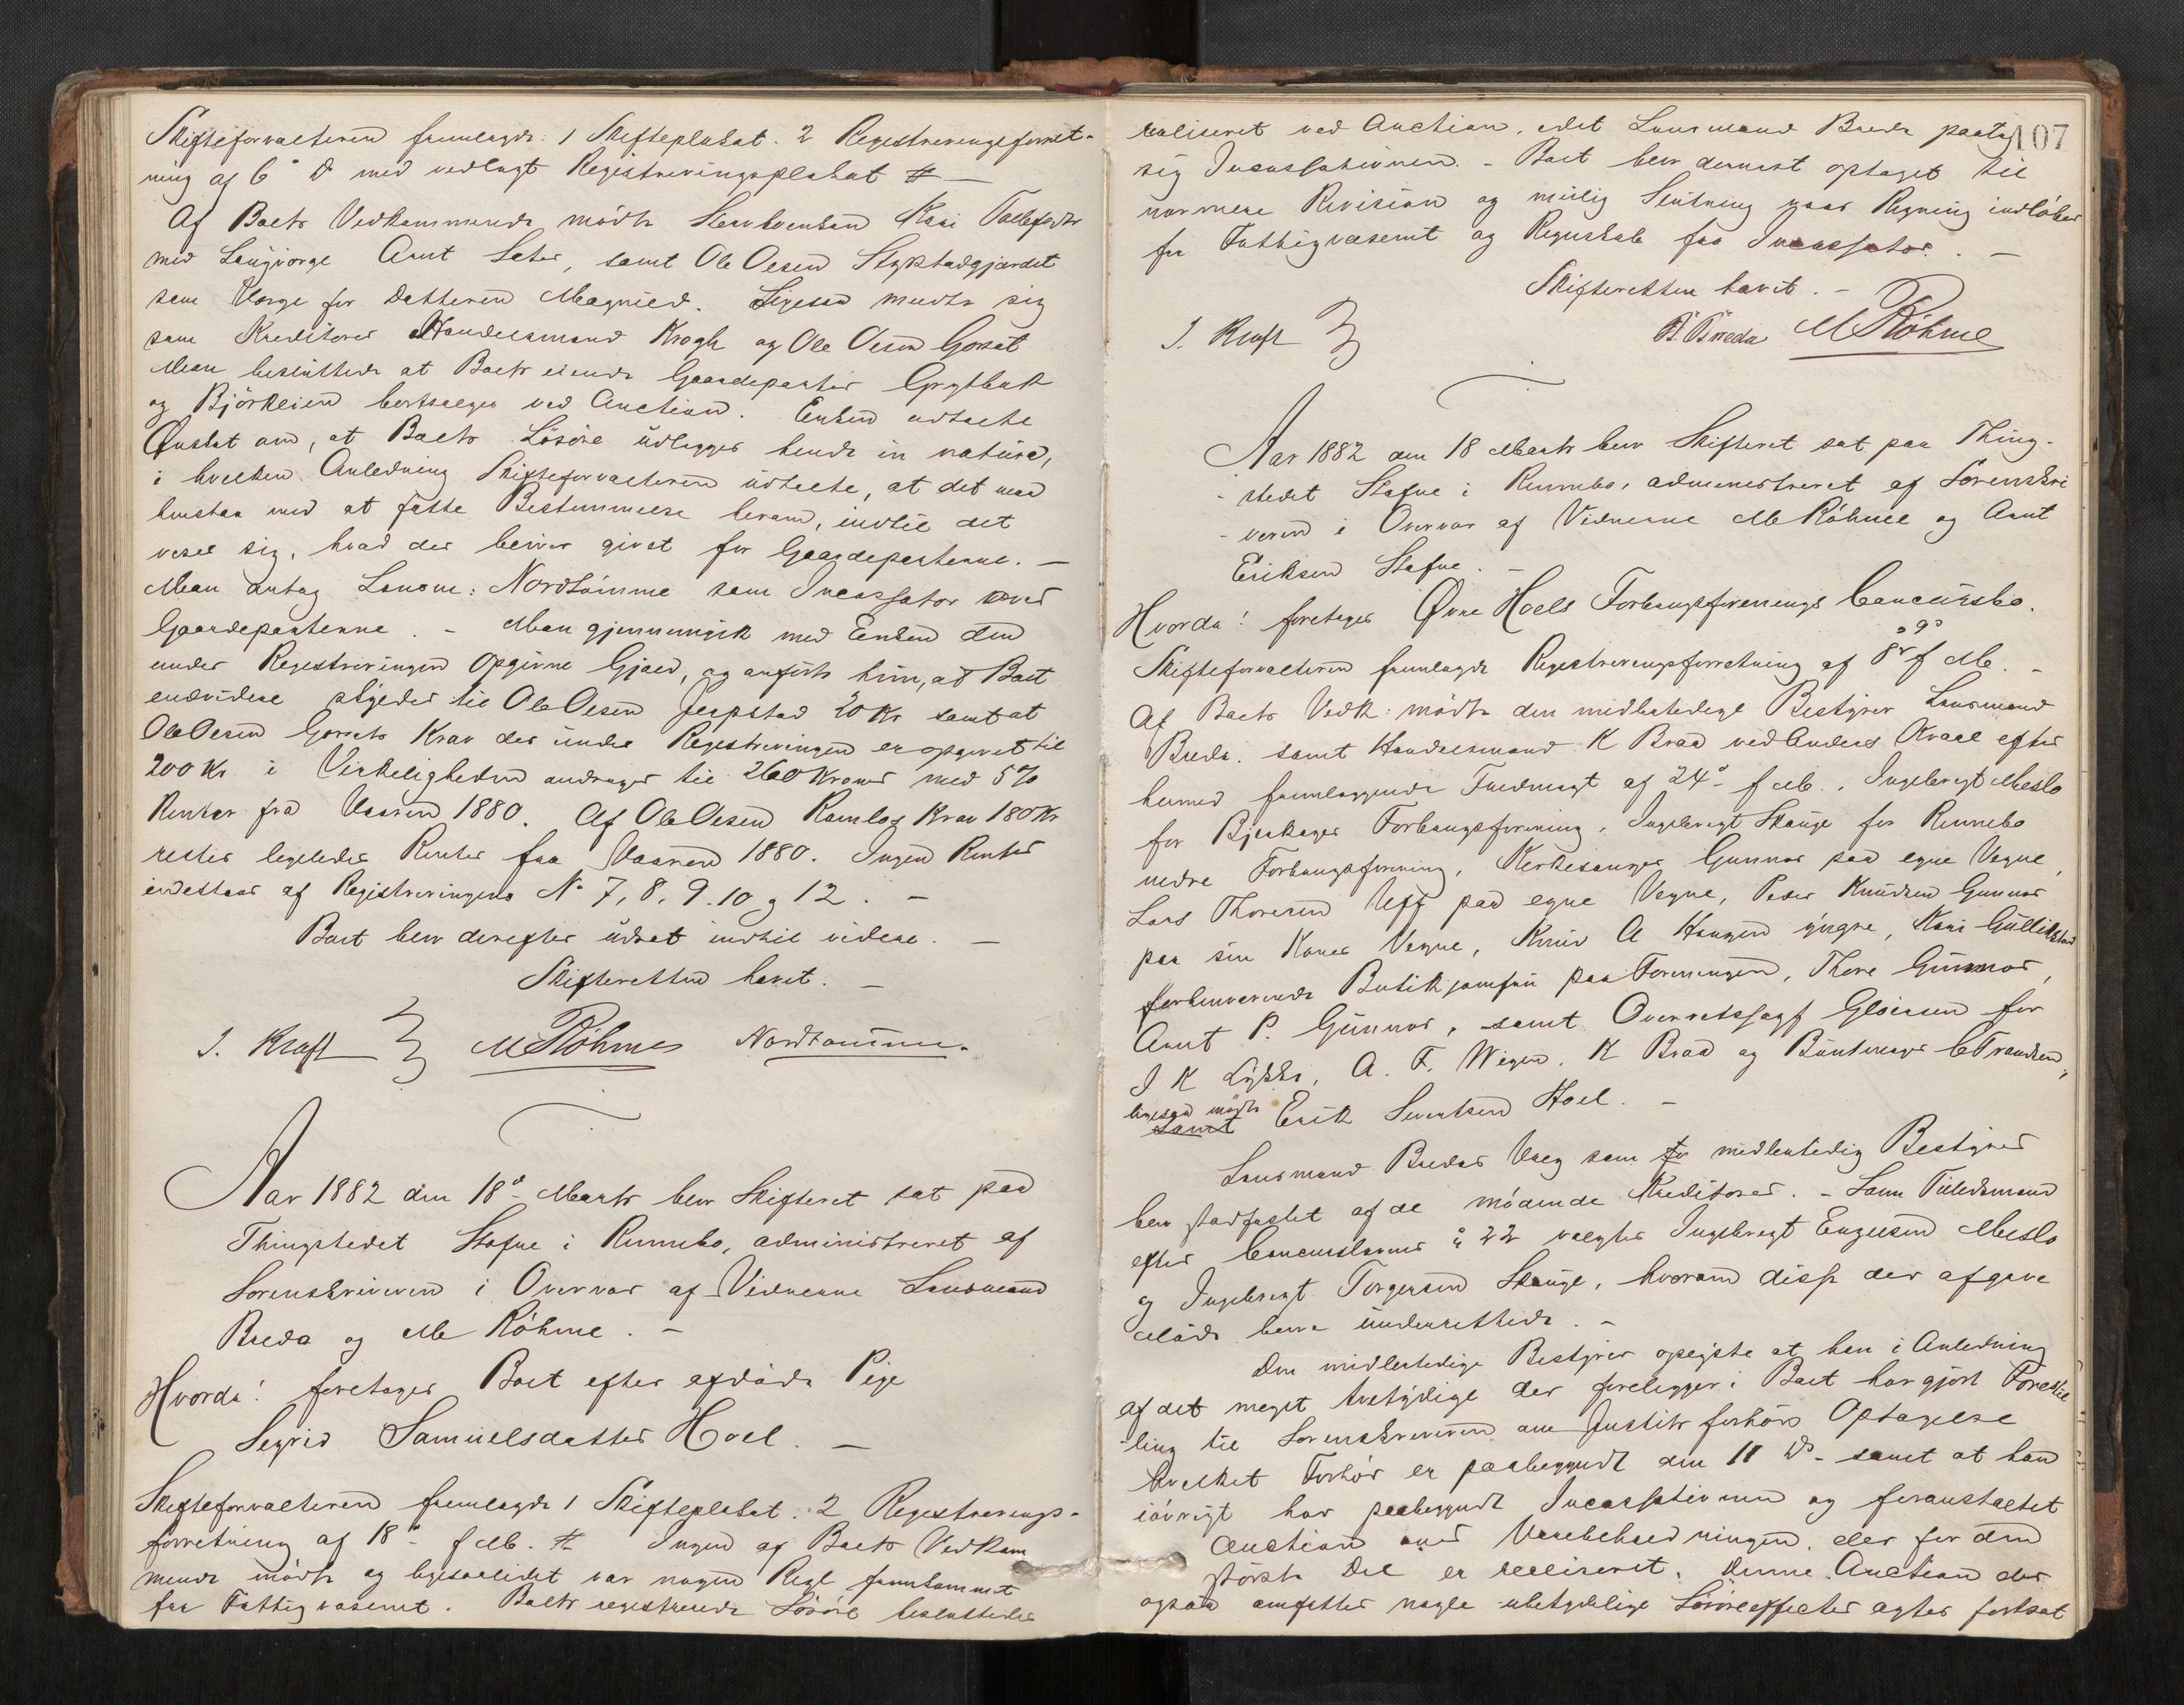 Skifteforvalteren fremlagde: 1 Skifteplakat. 2 Registreringsforret-
ning af 6° d med vedlagt Registreringsplakat #—
Af Boets Vedkommende mødte Kari
med Laugværge Arnt Seter, samt Ole Olsen
som Værge for Datteren Magnild. Ligesaa meldte sig
som Kreditorer Handelsmand Krogh og Ole Olsen Gorset
Man besluttede at Boets eiende Gaardeparter Grytbak
og Bjørkeien bortsælges ved Auction. Enken udtalte
Ønsket om, at Boets Løsøre udlægges hende in natura,
i hvilken Anledning Skifteforvalteren udtalte, at det maa
henstaa med at fatte Bestemmelse herom, indtil det
viser sig, hvad der bliver givet for Gaardeparterne. —
Man antog Lensm: Nordtømme som Incassator ved
Gaardeparterne. - Man gjennemgik med Enken den
under Registreringen opgivne Gjæld, og anførte hun, at Boet
endvidere skylder til Ole Olsen Jerpstad 20 Kr samt at
Ole Olsen Gorsets Krav der under Registreringen er opgivet til
200 Kr i Virkeligheden andrager til 260 Kroner med 5%
Renter fra Vaaren 1880. Af Ole Olsen Ramlos Krav 180 Kr
rester ligeledes Renter fra Vaaren 1880. Ingen Renter
indestaar af Registreringens No 7, 8, 9. 10 og 12. —
Boet blev derefter udsat indtil videre. —
Skifteretten hævet. —
J. Kraft M Röhme Nordtømme.
Aar 1882 den 18de Marts blev Skifteret sat paa
Thingstedet Stafne i Rennebo, administreret af
Sorenskriveren i Overvær af Vidnerne Lensmand
Breda og M Röhme. —
Hvorda! foretages Boet efter afdøde Pige
Sigrid Samuelsdatter Hoel. —
Skifteforvalteren fremlagde 1 Skifteplakat: 2 Registrerings-
forretning af 18- f M. # Ingen af Boets Vedkom
mende mødte og ligesaalidt var nogen Regl fremkommet
fra Fattigvæsenet. Boets registrerede Løsøre besluttedes
107
realiseret ved Auction, idet Lensmand Breda paatog
sig Incassationen. - Boet blev dernæst optaget til
nærmere Revision og mulig Slutning naar Regning indløber
fra Fattigvæsenet og Regnskab fra Incassator. —
Skifteretten hævet. -
J. Kraft B. Breda M Röhme
Aar 1882 den 18 Marts blev Skifteret sat paa Thing-
-stedet Stafne i Rennebo, administreret af Sorenskri
-veren i Overvær af Vidnerne M Röhme og Arnt
Eriksen Stafne. -
Hvorda! foretages Øvre Hoels Forbrugsforenings Concursbo.
Skifteforvalteren fremlagde Registreringsforretning af 8de og 9de f M. -
Af Boets Vedk: mødte den midlertidige Bestyrer Lensmand
Breda. samt Handelsmand K Braa ved Anders Kvaal efter
hermed fremlæggende Fuldmagt af 24de f M., Ingebrigt Meslo
for Bjerkager Forbrugsforening, Ingebrigt Stauge for Rennebo
nedre Forbrugsforening, Kirkesanger Gunnes paa egne Vegne,
Lars Thoresen Uff paa egne Vegne, Peder Knudsen Gunnes
paa sin Kones Vegne, Knud A Haugen yngre, Kari Gullikstad
forhenværende Butikjomfru paa Foreningen, Thore Gunnes,
Arnt P. Gunnes, samt Overretssagf Gløersen for
J K Lykke, A. F. Wigen. K Braa og Buntmager C Trondsen,
ligesaa mødte
samt Erik Sivertsen Hoel. -
Lensmand Bredas Valg som midlertidig Bestyrer
blev stadfæstet af de mødende Kreditorer. - Som Tillidsmænd
efter Concurslovens § 22 valgtes Ingebrigt Engelsen Meslo
og Ingebrigt Torgersen Stauge, hvorom disse der afgave
Møde bleve underrettede. -
Den midlertidige Bestyrer oplyste at han i Anledning
af det meget tvetydige der foreligger i Boet har gjort Forestil
-ling til Sorenskriveren om Justitsforhørs Optagelse
hvilket Forhør er paabegyndt den 11 ds - samt at han
iøvrigt har paabegyndt Incassationen og foranstaltet
Auction over Varebeholdningen, der for den
største Del er realiseret. Denne Auction der
ogsaa omfatter nogle ubetydelige Løsøreeffecter agtes fortsat